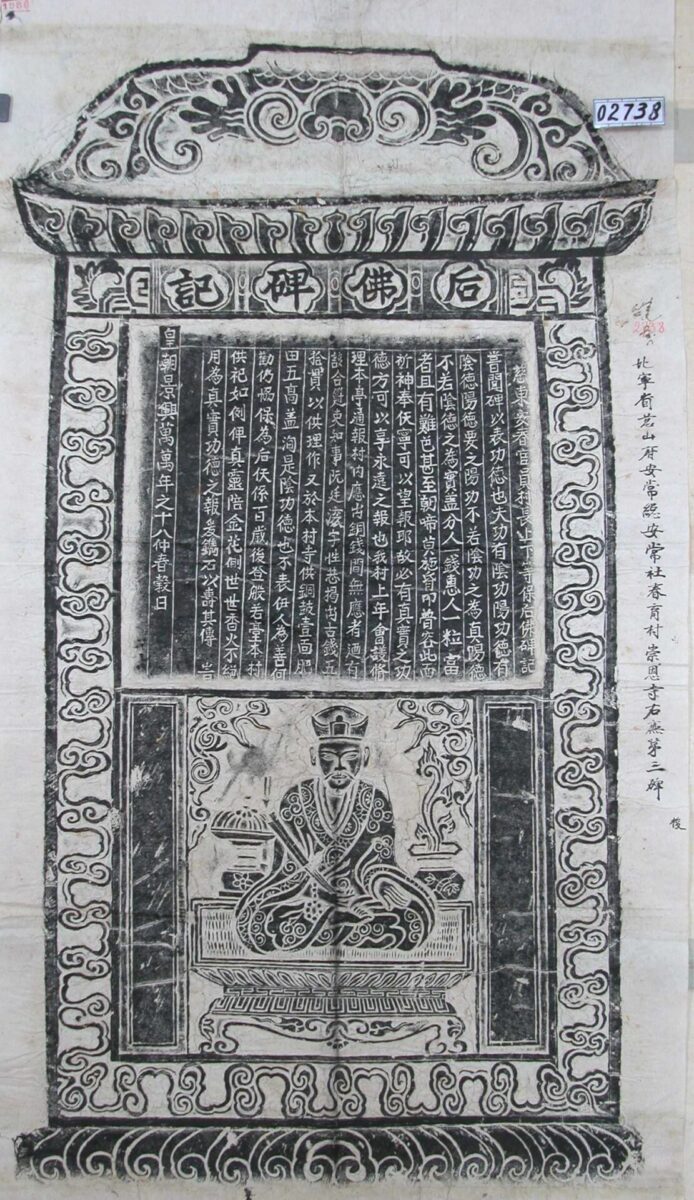 1088
02738
后佛碑記
慈東安春官員村長上下等保后佛碑記
昔聞碑以表功德也夫功有陰功陽功德有
陰德陽德要之陽功不若陰功之為真陽德
不若陰德之為實蓋分人一錢惠人一粒富
者且有難色甚至朝啼
祈神奉佛寧可以望報耶故必有真實之功
德方可以享永遠之報也我村上年會議修
理本亭通報村內應出銅錢間無應者適有
古錢五
拾貫以供理作又於本村寺供銅鼓壹面肥
田五高蓋洵是陰功德也不表伊人為善何
勸仍嗎保為后佛係百歲後登般若臺本村
供祀如例俾真靈陪金花側世世香火不絕
用為真實功德之報爰鐫石以壽其傳 旹
皇朝景興萬萬年之十八仲春穀日
2738
北寧省慈山府安常總安常社春育村崇恩寺右邊第三碑
後